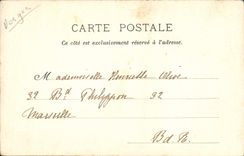 Vosges
CARTE POSTALE
Ce côté est exclusivement réservé à l'adresse.
Mademoiselle Henriette Olive
32 Bd Philippon 32
Marseille
B d R.